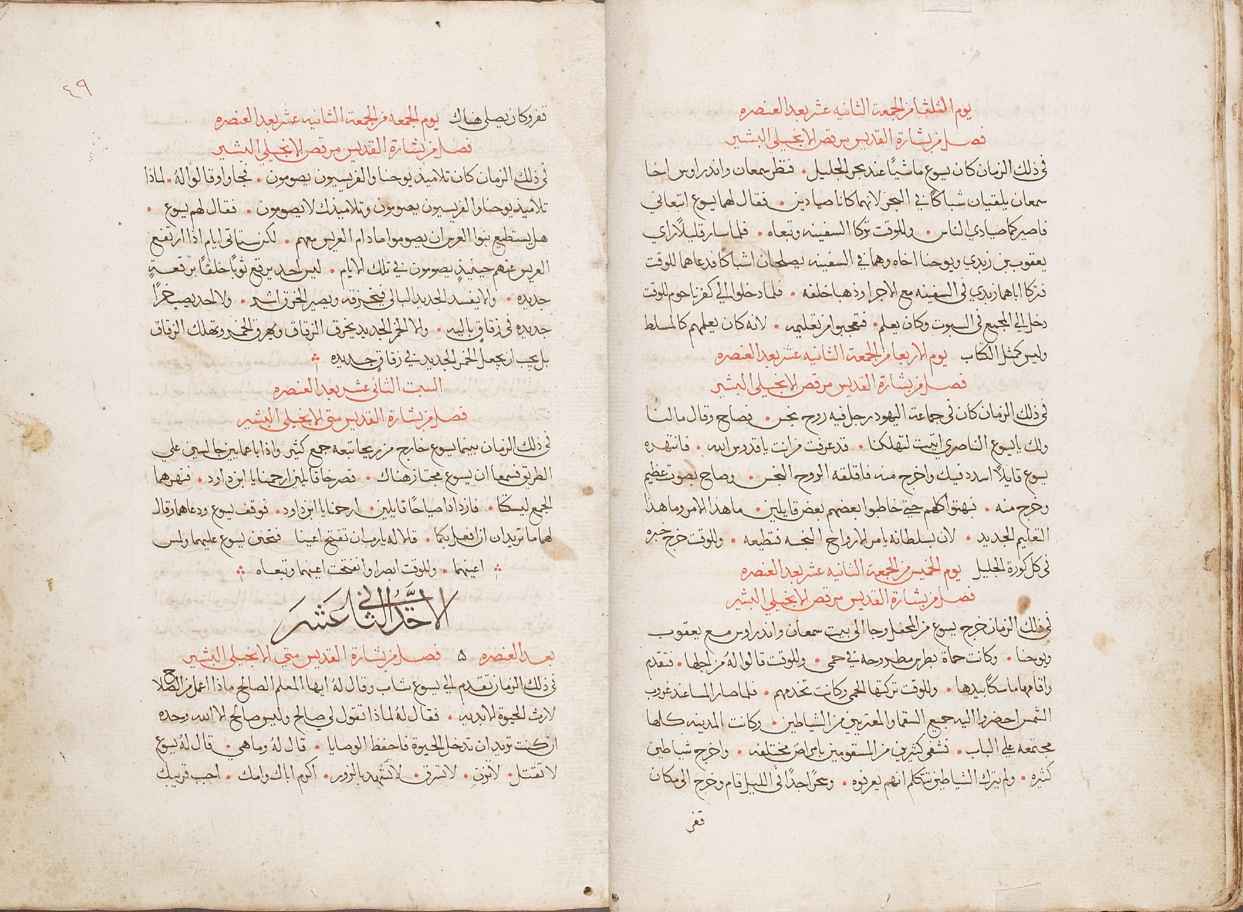 يوم الثلثا من الجمعة الثانيه عشر بعد العنصره
فصل من بشارة القديس مرقص الانجيلي البشير
في ذلك الزمان كان يسوع ماشيًا عند بحر الجليل • فنظر سمعان واندراوس اخا
سمعان يلقيان شباكًا في البحر لانهما كانا صيادين • فقال لهما يسوع اتبعاني
فاصيركما صيادي الناس • وللوقت تركا السفينه وتبعاه • فلما سار قليلاً راي
يعقوب بن زبدي ويوحنا اخاه وهما في السفينه يصلحان اشباكا فدعاهما للوقت
فتركا اباهما زبدي في السفينه مع الاجرا وذهبا خلفه • فلما دخلوا الي كفرناحوم للوقت
دخل الي المجمع في السبوت وكان يعلم • فتعجبوا من تعليمه • لانه كان يعلمهم كالمسلط
وليس كمثل الكتاب يوم الاربعا من الجمعة الثانيه عشر بعد العنصره
فصل من بشارة القديس مرقص الانجيلي البشير
في ذلك الزمان كان في جماعة اليهود رجل فيه روح نجس • فصاح وقال ما لنا
ولك يا يسوع الناصري اتيت لتهلكنا • قد عرفت من انت يا قدوس الله • فانتهره
يسوع قايلاً اسدد فيك واخرج منه فاقلقه الروح النجس • وصاح بصوت عظيم
وخرج منه • فبهتوا كلهم حتي خاطبوا بعضهم بعض قايلين • ما هذا الامر وما هذا
التعليم الجديد • لان بسلطانه يامر الارواح النجسه فتطيعه • وللوقت خرج خبره
في كل كورة الجليل يوم الخميس من الجمعة الثانيه عشر بعد العنصره
فصل من بشارة القديس مرقص الانجيلي البشير
في ذلك الزمان خرج يسوع من المحفل وجا الي بيت سمعان واندراوس مع يعقوب
ويوحنا • وكانت حماة بطرس مطروحه في حمي • وللوقت قالوا لهُ من اجلها • فتقدم
واقامها ماسكًا بيدها • وللوقت تركتها الحمي وكانت تخدمهم • فلما صار المسا عند غروب
الشمس احضروا اليه جميع السقما والمعتريين من الشياطين • وكانت المدينه كلها
مجتمعه علي الباب • فشفي كثيرين من المسقومين بامراض مختلفه • واخرج شياطين
كثيره • ولم يترك الشياطين تتكلم انهم يعرفوه • وسحرًا جدًا في الليل قام وخرج الي مكان
قفر
٤٩
قفر وكان يصلي هناك يوم الجمعه من الجمعة الثانيه عشر بعد العنصره
فصل من بشارة القديس مرقص الانجيلي البشير
في ذلك الزمان كان تلاميذ يوحنا والفريسيون يصومون • فجاوا وقالوا لهُ • لماذا
تلاميذ يوحنا والفريسيون يصومون وتلاميذك لا يصومون • فقال لهم يسوع •
هل يستطيع بنوا العرس ان يصوموا ما دام العريس معهم • لكن ستاتي ايام اذا ارتفع
العريس عنهم حينيذٍ يصومون في تلك الايام • ليس احد يرقع ثوبًا خلقًا برقعة
جديده • والا يفسد الجديد البالي فيخرقه ويصير الخرق اشد • ولا احد يصب خمرًا
جديده في زقاق باليه • والا الخمر الجديد يخرق الزقاق ويهرق الخمر وتهلك الزقاق
بل يجب ان يجعل الخمر الجديد في زقاق جديده
السبت الثاني عشر بعد العنصره
فصل من بشارة القديس متي الانجيلي البشير
في ذلك الزمان بينما يسوع خارج من يريحا تبعه جمع كثير واذا باعميين جالسين علي
الطريق فسمعا ان يسوع مجتاز هناك • فصرخا قايلين ارحمنا يا ابن داود • فنهرهما
الجمع ليسكتا • فازدادا صياحًا قايلين • ارحمنا يا ابن داود • فوقف يسوع ودعاهما وقال
لهما ما تريدان ان افعل بكما • قالا له يا رب ان تنفتح اعيننا فتحنن يسوع عليهما ولمس
اعينهما • وللوقت ابصرا وانفتحت اعينهما وتبعاه
الاحد الثاني عشر
بعد العنصره ۵ فصل من بشارة القديس متي الانجيلي البشير
في ذلك الزمان تقدم الي يسوع شاب وقال لهُ ايها المعلم الصالح ماذا اعمل من الصلاح
لارث الحيوة الابديه • فقال لهُ لماذا تقول لي صالح وليس صالح الا الله وحده
ان كنت تريد ان تدخل الحيوة فاحفظ الوصايا • قال لهُ وما هي • قال لهُ يسوع
لا تقتل • لا تزن • لا تسرق • لا تشهد بالزور • اكرم اباك وامك • احبب قريبك